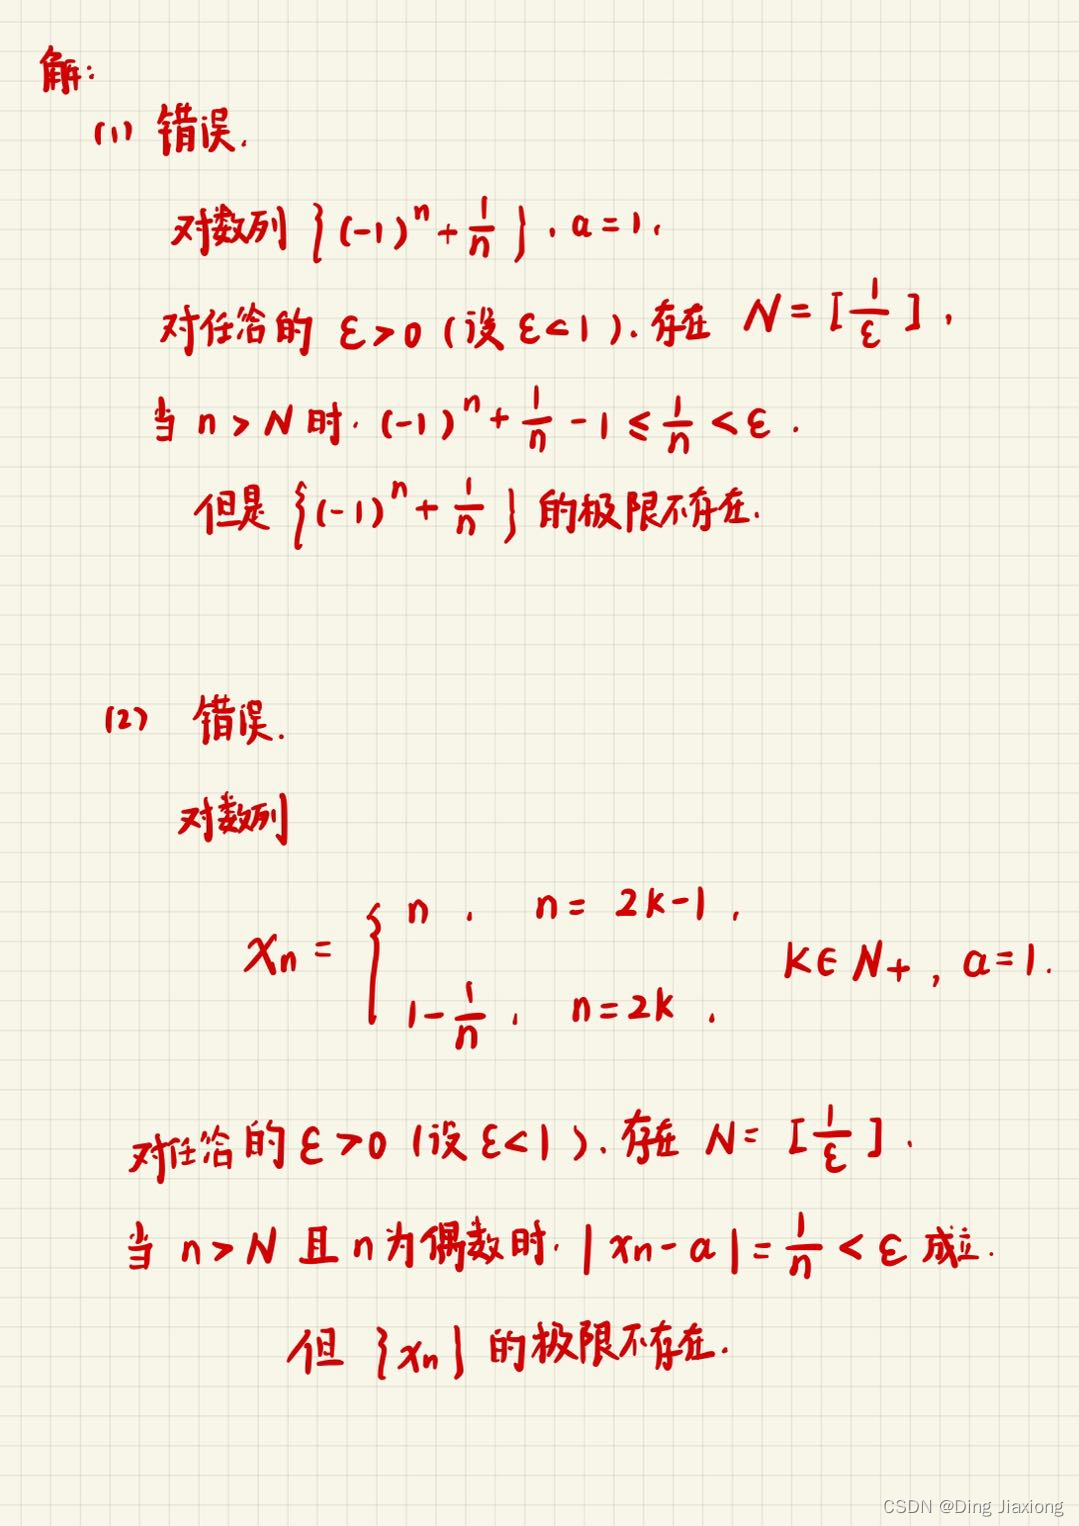 解:
(1) 错误.
对数列 {(-1)^n + 1/n}, a = 1,
对任给的 ε > 0 (设 ε < 1), 存在 N = [1/ε],
当 n > N 时, (-1)^n + 1/n - 1 ≤ 1/n < ε.
但是 {(-1)^n + 1/n} 的极限不存在.
(2) 错误.
对数列
x_n = { n, n = 2k-1,
1 - 1/n, n = 2k,
k ∈ N_+, a = 1.
对任给的 ε > 0 (设 ε < 1), 存在 N = [1/ε],
当 n > N 且 n 为偶数时, |x_n - a| = 1/n < ε 成立.
但 {x_n} 的极限不存在.
CSDN @Ding Jiaxiong